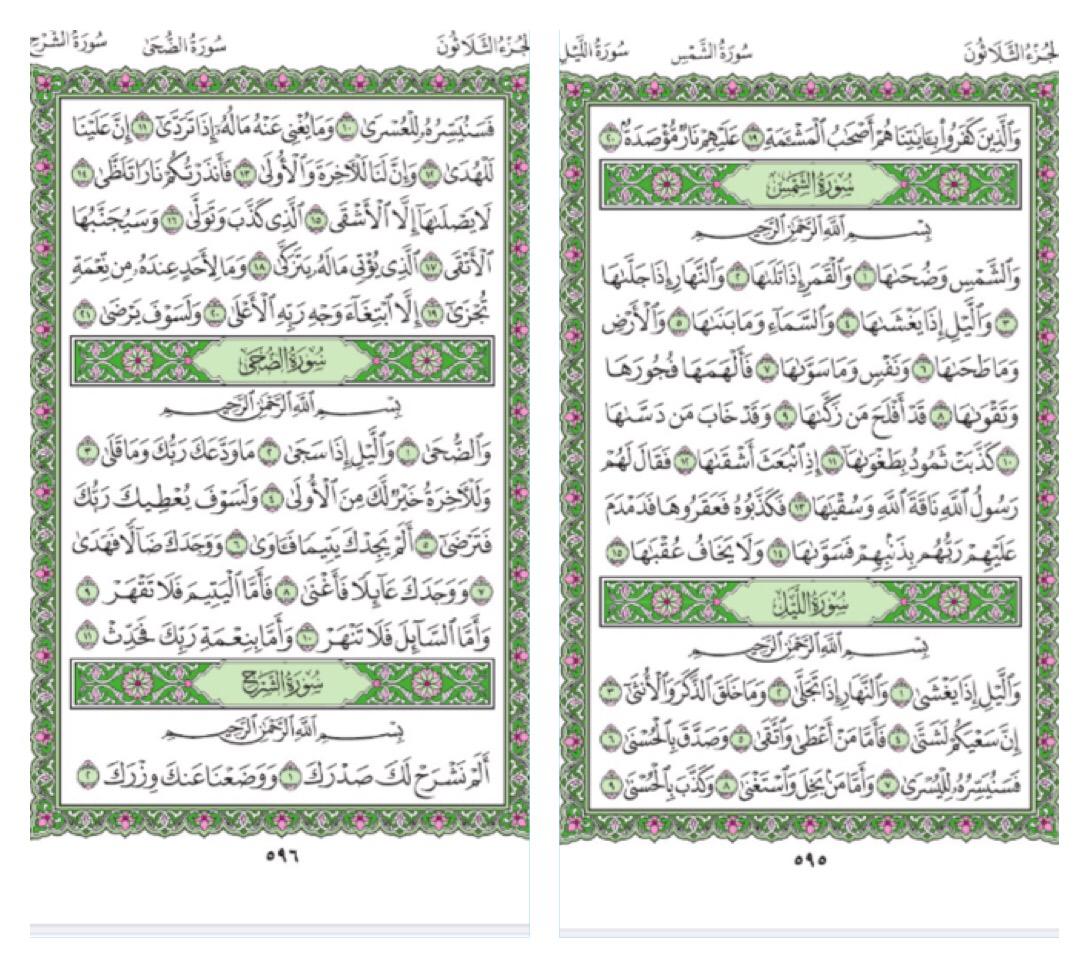 الجُزْءُ الثَّلَاثُونَ سُورَةُ الشَّمْسِ سُورَةُ اللَّيْلِ
وَالَّذِينَ كَفَرُوا بِـَٔايَـٰتِنَا هُمْ أَصْحَـٰبُ الْمَشْـَٔمَةِ ١٩ عَلَيْهِمْ نَارٌ مُّؤْصَدَةٌ ٢٠
سُورَةُ الشَّمْسِ
بِسْمِ اللَّهِ الرَّحْمَـٰنِ الرَّحِيمِ
وَالشَّمْسِ وَضُحَىٰهَا ١ وَالْقَمَرِ إِذَا تَلَىٰهَا ٢ وَالنَّهَارِ إِذَا جَلَّىٰهَا
٣ وَالَّيْلِ إِذَا يَغْشَىٰهَا ٤ وَالسَّمَآءِ وَمَا بَنَىٰهَا ٥ وَالْأَرْضِ
وَمَا طَحَىٰهَا ٦ وَنَفْسٍ وَمَا سَوَّىٰهَا ٧ فَأَلْهَمَهَا فُجُورَهَا
وَتَقْوَىٰهَا ٨ قَدْ أَفْلَحَ مَن زَكَّىٰهَا ٩ وَقَدْ خَابَ مَن دَسَّىٰهَا
١٠ كَذَّبَتْ ثَمُودُ بِطَغْوَىٰهَآ ١١ إِذِ انۢبَعَثَ أَشْقَىٰهَا ١٢ فَقَالَ لَهُمْ
رَسُولُ اللَّهِ نَاقَةَ اللَّهِ وَسُقْيَـٰهَا ١٣ فَكَذَّبُوهُ فَعَقَرُوهَا فَدَمْدَمَ
عَلَيْهِمْ رَبُّهُم بِذَنۢبِهِمْ فَسَوَّىٰهَا ١٤ وَلَا يَخَافُ عُقْبَـٰهَا ١٥
سُورَةُ اللَّيْلِ
بِسْمِ اللَّهِ الرَّحْمَـٰنِ الرَّحِيمِ
وَالَّيْلِ إِذَا يَغْشَىٰ ١ وَالنَّهَارِ إِذَا تَجَلَّىٰ ٢ وَمَا خَلَقَ الذَّكَرَ وَالْأُنثَىٰٓ ٣
إِنَّ سَعْيَكُمْ لَشَتَّىٰ ٤ فَأَمَّا مَنْ أَعْطَىٰ وَاتَّقَىٰ ٥ وَصَدَّقَ بِالْحُسْنَىٰ ٦
فَسَنُيَسِّرُهُۥ لِلْيُسْرَىٰ ٧ وَأَمَّا مَنۢ بَخِلَ وَاسْتَغْنَىٰ ٨ وَكَذَّبَ بِالْحُسْنَىٰ ٩
٥٩٥
الجُزْءُ الثَّلَاثُونَ سُورَةُ الضُّحَىٰ سُورَةُ الشَّرْحِ
فَسَنُيَسِّرُهُۥ لِلْعُسْرَىٰ ١٠ وَمَا يُغْنِى عَنْهُ مَالُهُۥٓ إِذَا تَرَدَّىٰٓ ١١ إِنَّ عَلَيْنَا
لَلْهُدَىٰ ١٢ وَإِنَّ لَنَا لَلْـَٔاخِرَةَ وَالْأُولَىٰ ١٣ فَأَنذَرْتُكُمْ نَارًا تَلَظَّىٰ ١٤
لَا يَصْلَىٰهَآ إِلَّا الْأَشْقَى ١٥ الَّذِى كَذَّبَ وَتَوَلَّىٰ ١٦ وَسَيُجَنَّبُهَا
الْأَتْقَى ١٧ الَّذِى يُؤْتِى مَالَهُۥ يَتَزَكَّىٰ ١٨ وَمَا لِأَحَدٍ عِندَهُۥ مِن نِّعْمَةٍ
تُجْزَىٰٓ ١٩ إِلَّا ابْتِغَآءَ وَجْهِ رَبِّهِ الْأَعْلَىٰ ٢٠ وَلَسَوْفَ يَرْضَىٰ ٢١
سُورَةُ الضُّحَىٰ
بِسْمِ اللَّهِ الرَّحْمَـٰنِ الرَّحِيمِ
وَالضُّحَىٰ ١ وَالَّيْلِ إِذَا سَجَىٰ ٢ مَا وَدَّعَكَ رَبُّكَ وَمَا قَلَىٰ ٣
وَلَلْـَٔاخِرَةُ خَيْرٌ لَّكَ مِنَ الْأُولَىٰ ٤ وَلَسَوْفَ يُعْطِيكَ رَبُّكَ
فَتَرْضَىٰٓ ٥ أَلَمْ يَجِدْكَ يَتِيمًا فَـَٔاوَىٰ ٦ وَوَجَدَكَ ضَآلًّا فَهَدَىٰ
٧ وَوَجَدَكَ عَآئِلًا فَأَغْنَىٰ ٨ فَأَمَّا الْيَتِيمَ فَلَا تَقْهَرْ ٩
وَأَمَّا السَّآئِلَ فَلَا تَنْهَرْ ١٠ وَأَمَّا بِنِعْمَةِ رَبِّكَ فَحَدِّثْ ١١
سُورَةُ الشَّرْحِ
بِسْمِ اللَّهِ الرَّحْمَـٰنِ الرَّحِيمِ
أَلَمْ نَشْرَحْ لَكَ صَدْرَكَ ١ وَوَضَعْنَا عَنكَ وِزْرَكَ ٢
٥٩٦